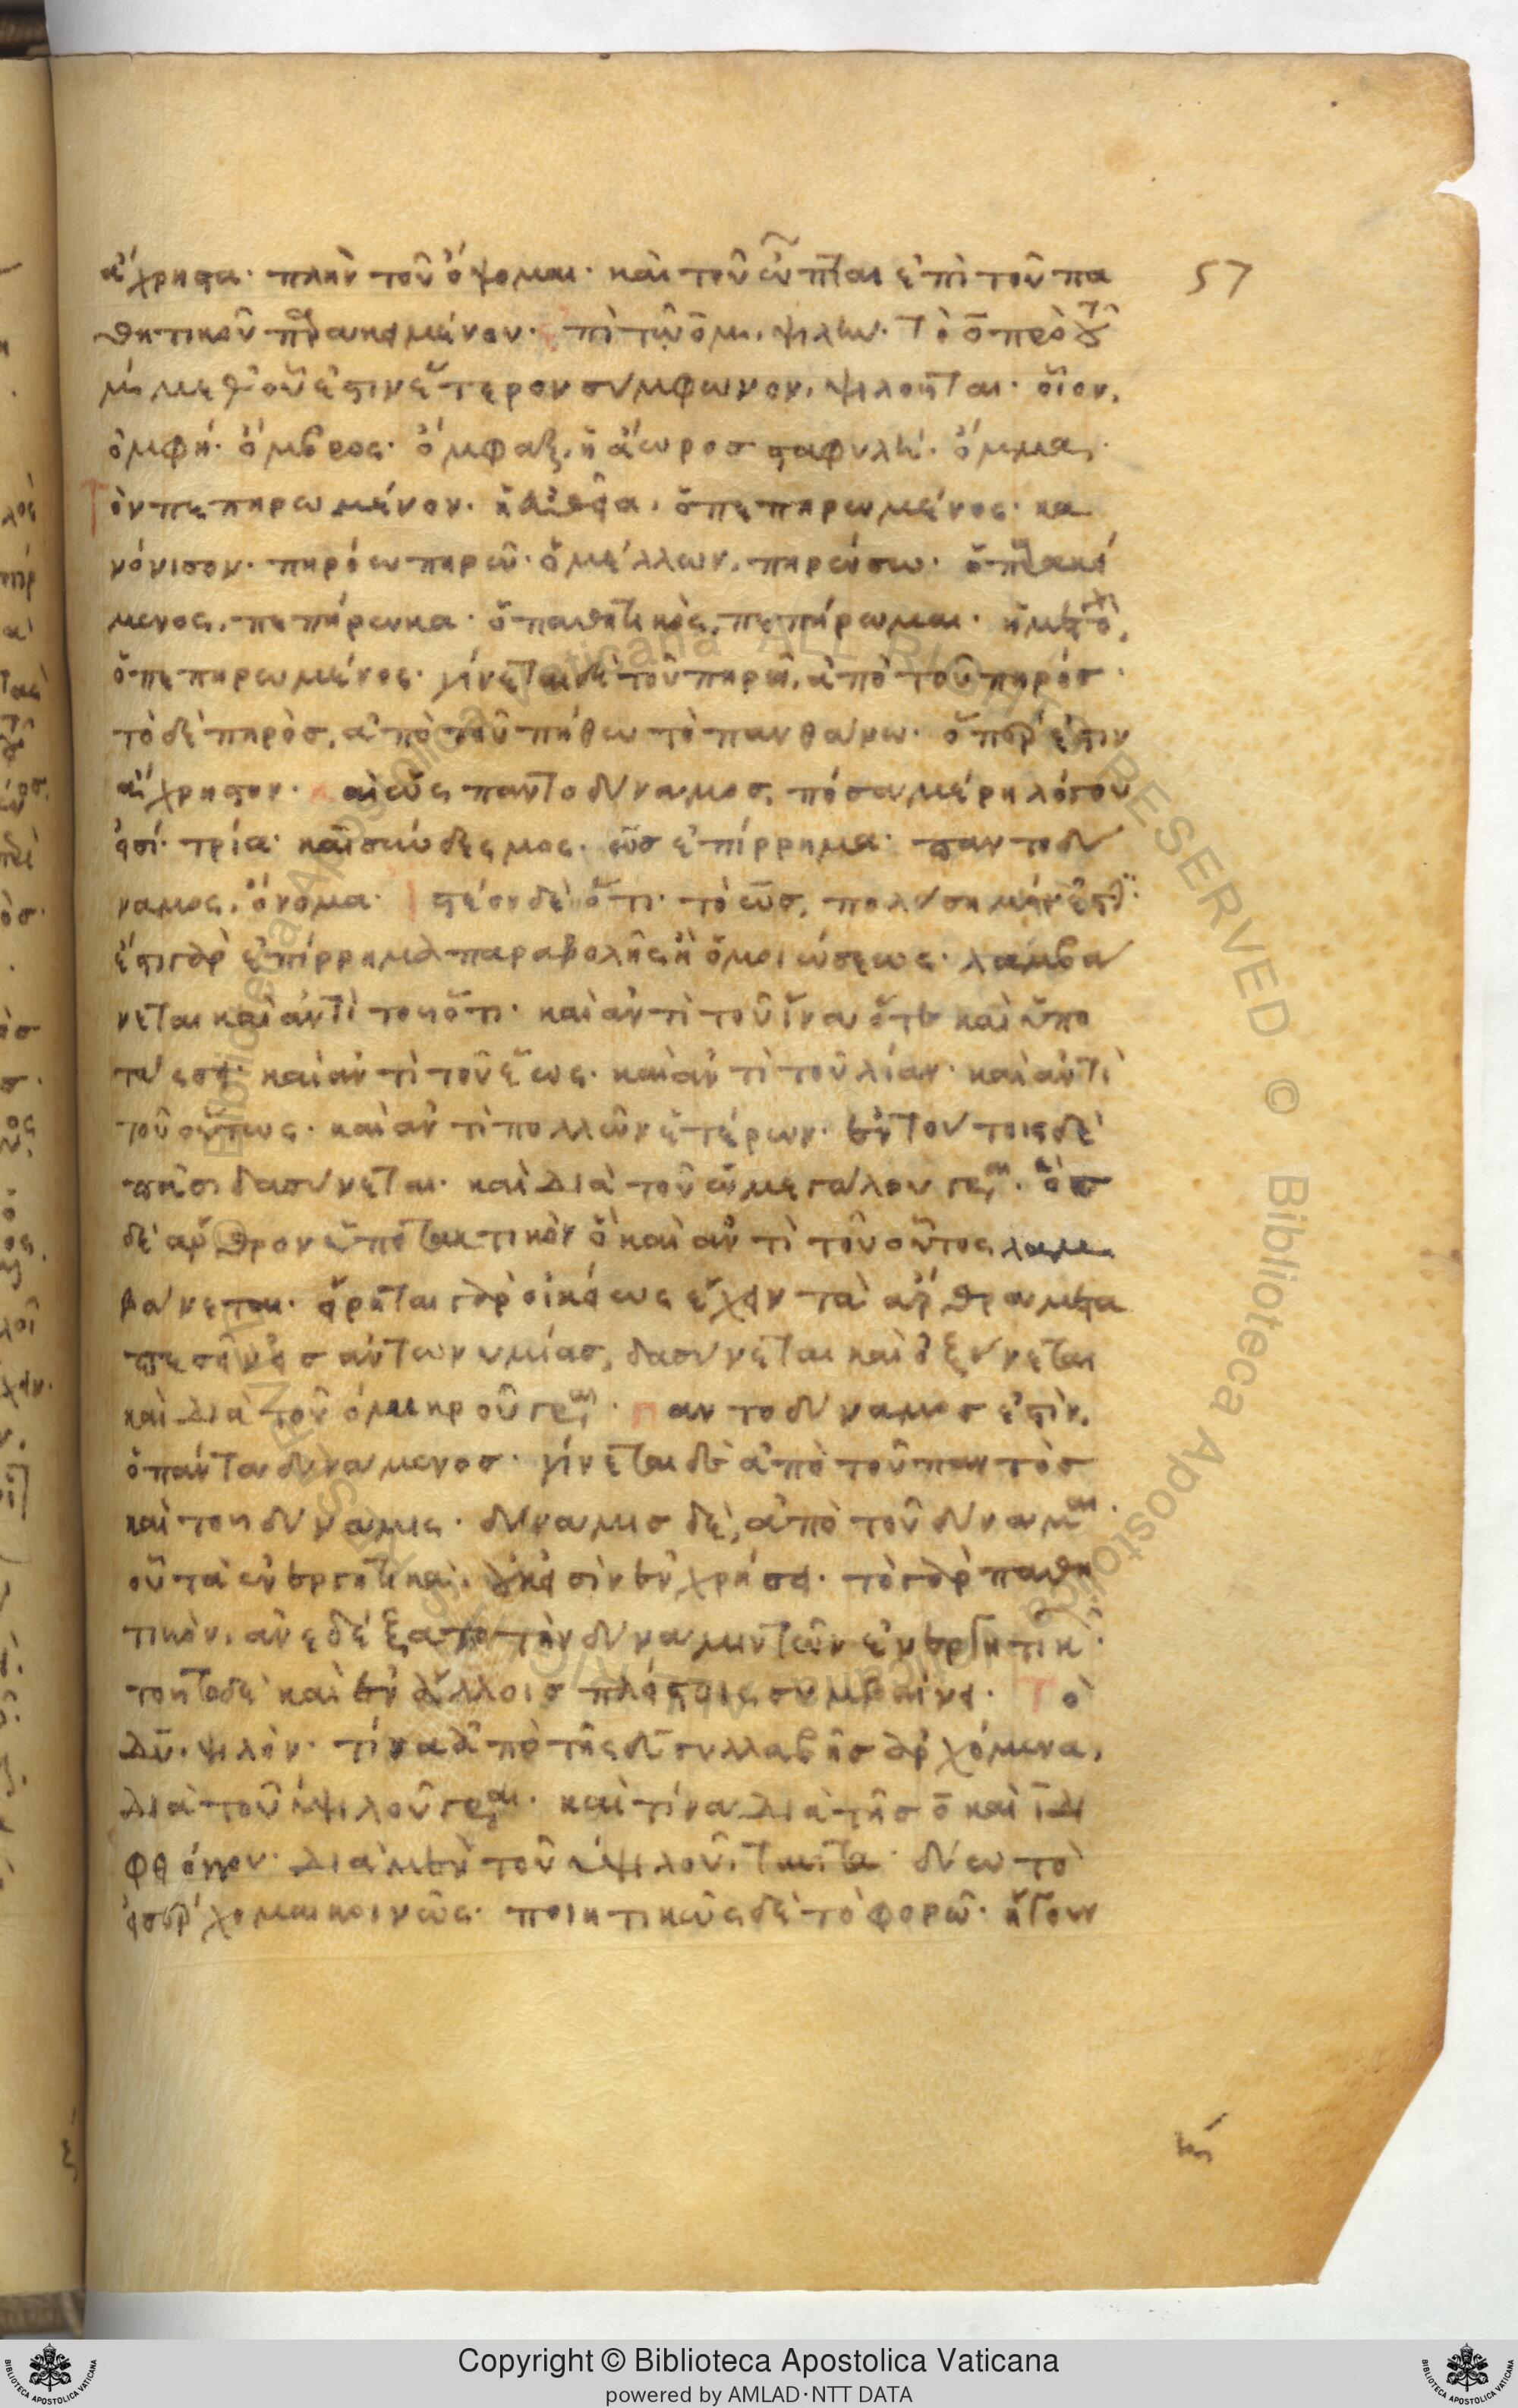 ἄχρηστα· πλὴν τοῦ ὄψομαι· καὶ τοῦ ὦπται ἐπὶ τοῦ πα
57
θητικοῦ παρακειμένου· πὶ τῷ ὄμμ, ψιλόν. Τὸ ο πρὸ τοῦ
μ μεθ' οὗ ἐστιν ἕτερον σύμφωνον, ψιλοῦται· οἷον,
ὀμφή· ὄμβρος· ὄμφαξ, ἡ ἄωρος σταφυλή· ὄμμα,
Τὸν πεπηρωμένον· ἡ εὐθεῖα, ὁ πεπηρωμένος· κα
νόνισον· πηρόω πηρῶ· ὁ μέλλων, πηρώσω· ὁ παρακεί
μενος, πεπήρωκα· ὁ παθητικὸς, πεπήρωμαι· ἡ μετοχὴ,
ὁ πεπηρωμένος· γίνεται δὲ τοῦ πηρῶ, ἀπὸ τοῦ πηρός·
τὸ δὲ πηρὸς, ἀπὸ τοῦ πήθω τὸ πανθάνω· ὅπερ ἐστιν
ἄχρηστον· καὶ ὡς παντοδύναμος, πόσα μέρη λόγου
εἰσί· τρία· καὶ σύνδεσμος· ὡς ἐπίρρημα· παντοδύ
ναμος, ὄνομα· Ἰστέον δὲ ὅτι τὸ ὡς, πολυσήμαντόν ἐστι·
ἔστι γὰρ ἐπίρρημα παραβολῆς ἢ ὁμοιώσεως· λαμβά
νεται καὶ ἀντὶ τοῦ ὅτι· καὶ ἀντὶ τοῦ ἵνα ὅτε καὶ ὑπο
τάσσει· καὶ ἀντὶ τοῦ ἕως· καὶ ἀντὶ τοῦ λίαν· καὶ ἀντὶ
τοῦ οὕτως· καὶ ἀντὶ πολλῶν ἑτέρων· ἐν τούτοις δὲ
πᾶσι δασύνεται· καὶ διὰ τοῦ ω μεγάλου γράφεται· ὃς
δὲ ἄρθρον ὑποτακτικὸν ὃ καὶ ἀντὶ τοῦ οὗτος λαμ
βάνεται· εἴρηται γὰρ οἰκείως ἔχειν τὰ ἄρθρα μετα
πεσεῖν εἰς ἀντωνυμίας, δασύνεται καὶ ὀξύνεται
καὶ διὰ τοῦ ο μικροῦ γράφεται· παντοδύναμος ἐστὶν,
ὁ πάντα δυνάμενος· γίνεται δὲ ἀπὸ τοῦ παντὸς
καὶ τοῦ δύναμις· δύναμις δὲ, ἀπὸ τοῦ δύναμαι·
οὗ τὰ ἐνεργητικὰ, οὐκ εἰσὶν ἐν χρήσει· τὸ γὰρ παθη
τικὸν, ἀνεδέξατο τὴν δύναμιν τῶν ἐνεργητικῶν·
τοῦτο δὲ καὶ ἐν ἄλλοις πλείστοις συμβαίνει· Τὸ
δυ, ψιλὸν· τίνα ἀπὸ τῆς δυ συλλαβῆς ἀρχόμενα,
διὰ τοῦ υ ψιλοῦ γράφεται· καὶ τίνα διὰ τῆς ο καὶ ι δι
φθόγγου· διὰ μὲν τοῦ υ ψιλοῦ, ταῦτα· δύω τὸ
εἰσέρχομαι κοινῶς· ποιητικῶς δὲ τὸ φορῶ· ἤγουν